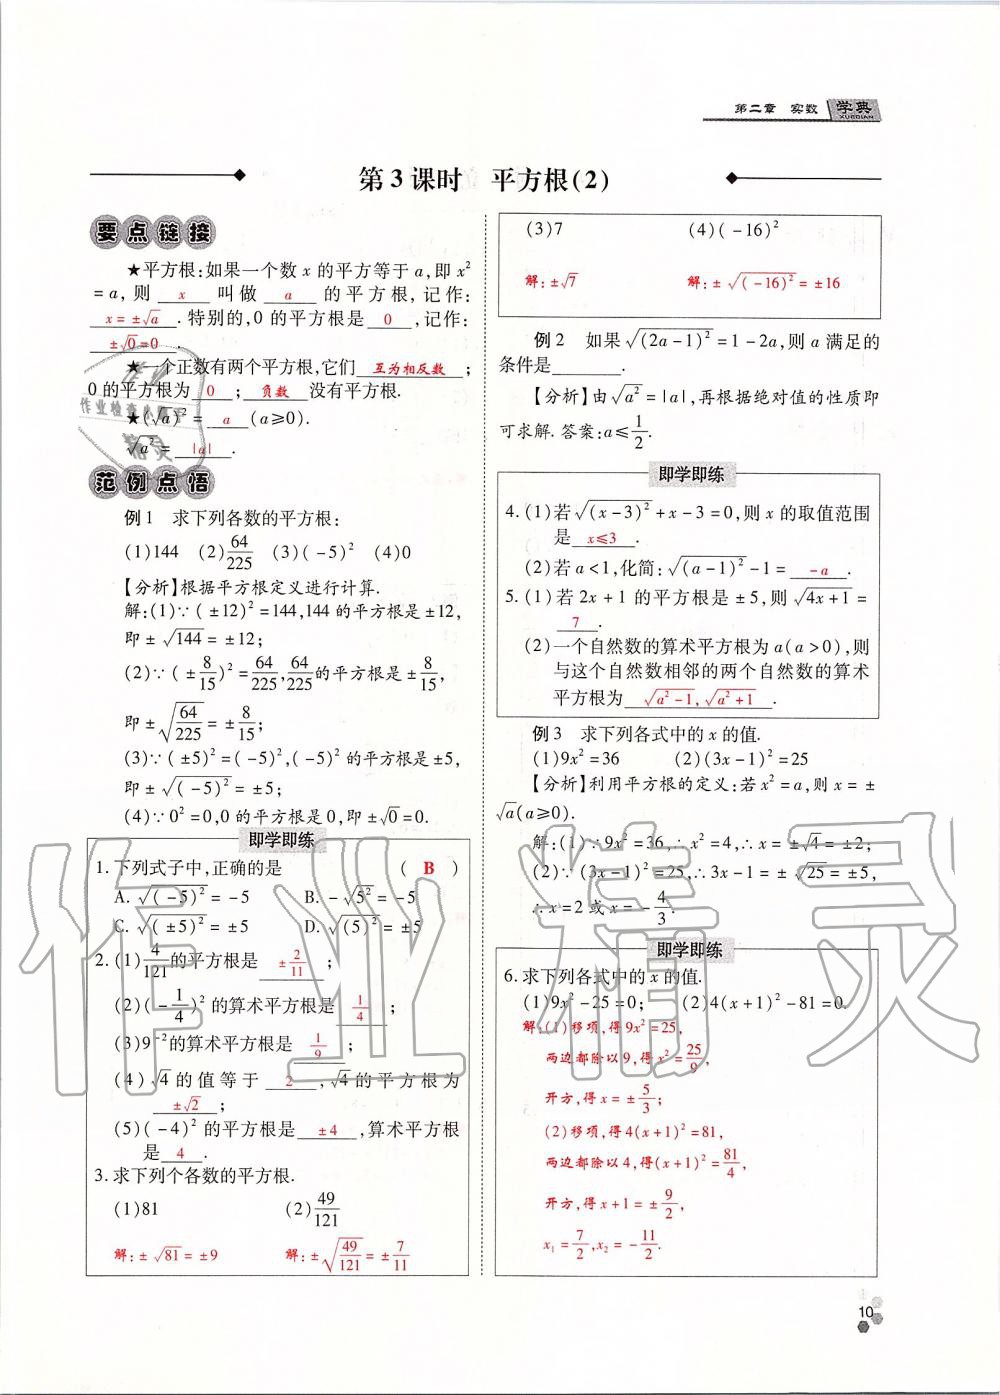 第二章 实数 学典
XUEDIAN
第3课时 平方根(2)
要点链接
★平方根:如果一个数 x 的平方等于 a,即 x²
=a, 则 x 叫做 a 的平方根, 记作:
x=±√a. 特别的,0 的平方根是 0 ,记作:
±√0=0.
★一个正数有两个平方根,它们 互为相反数 ;
0 的平方根为 0 ; 负数 没有平方根.
★(√a)²= a (a≥0).
√a²= |a| .
范例点悟
例1 求下列各数的平方根:
(1)144 (2)64/225 (3)(-5)² (4)0
【分析】根据平方根定义进行计算.
解:(1)∵(±12)²=144,144 的平方根是±12,
即±√144=±12;
(2)∵(±8/15)²=64/225,64/225的平方根是±8/15,
即±√(64/225)=±8/15;
(3)∵(±5)²=(-5)²,(-5)²的平方根是±5,
即±√(-5)²=±5;
(4)∵0²=0,0 的平方根是 0,即±√0=0.
即学即练
1. 下列式子中,正确的是 ( B )
A. √(-5)²=-5 B. -√5²=-5
C. √(±5)²=±5 D. √(5)²=±5
2. (1)4/121的平方根是 ±2/11 ;
(2)(-1/4)²的算术平方根是 1/4 ;
(3)9⁻²的算术平方根是 1/9 ;
(4)√4的值等于 2 ,√4的平方根为
±√2 ;
(5)(-4)²的平方根是 ±4 ,算术平方根
是 4 .
3. 求下列个各数的平方根.
(1)81 (2)49/121
解:±√81=±9 解:±√(49/121)=±7/11
(3)7 (4)(-16)²
解:±√7 解:±√(-16)²=±16
例2 如果√(2a-1)²=1-2a,则 a 满足的
条件是 .
【分析】由√a²=|a|,再根据绝对值的性质即
可求解. 答案:a≤1/2.
即学即练
4. (1)若√(x-3)²+x-3=0,则 x 的取值范围
是 x≤3 .
(2)若 a<1,化简:√(a-1)²-1= -a .
5. (1)若 2x+1 的平方根是±5,则√(4x+1)=
7 .
(2)一个自然数的算术平方根为 a(a>0),则
与这个自然数相邻的两个自然数的算术
平方根为 √(a²-1),√(a²+1) .
例3 求下列各式中的 x 的值.
(1)9x²=36 (2)(3x-1)²=25
【分析】利用平方根的定义:若 x²=a,则 x=±
√a(a≥0).
解:(1)∵9x²=36,∴x²=4,∴x=±√4=±2,
(2)∵(3x-1)²=25,∴3x-1=±√25=±5,
∴x=2 或 x=-4/3.
即学即练
6. 求下列各式中的 x 的值.
(1)9x²-25=0; (2)4(x+1)²-81=0.
解:(1)移项,得 9x²=25,
两边都除以 9,得 x²=25/9,
开方,得 x=±5/3;
(2)移项,得 4(x+1)²=81,
两边都除以 4,得(x+1)²=81/4,
开方,得 x+1=±9/2,
x₁=7/2,x₂=-11/2.
10
作业精灵